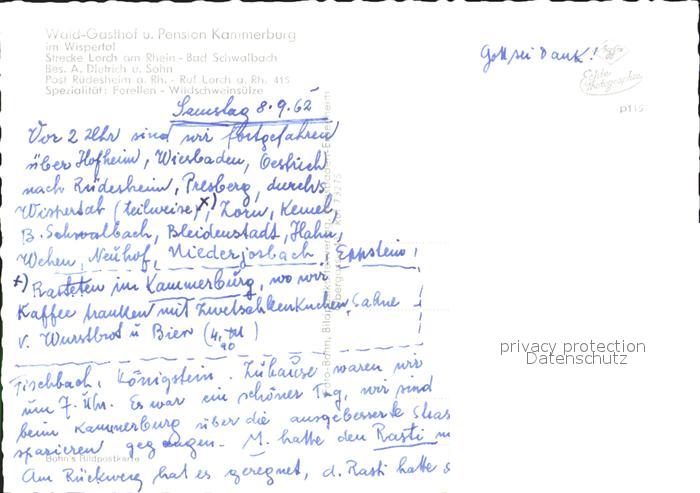 Wald-Gasthof u. Pension Kammerburg
im Wispertal
Strecke Lorch am Rhein - Bad Schwalbach
Bes. A. Dietrich u. Sohn
Post Rüdesheim a. Rh. - Ruf Lorch a. Rh. 415
Spezialität: Forellen - Wildschweinsülze
Gott sei Dank!
Echte Photographie
Samstag 8.9.62
Vor 2 Uhr sind wir fortgefahren
über Hofheim, Wiesbaden, Oestrich
nach Rüdesheim, Presberg, durchs
Wispertal (teilweise x), Zorn, Kemel,
B. Schwalbach, Bleidenstadt, Hahn,
Wehen, Neuhof, Niederjosbach, Eppstein,
x) Rasteten im Kammerburg, wo wir
Kaffee tranken mit Zwetschkenkuchen, Sahne
v. Wurstbrot u Bier (4,90 DM)
Fischbach, Königstein. Zuhause waren wir
um 7. Uhr. Es war ein schöner Tag, wir sind
beim Kammerburg über die ausgebesserte Stras
spazieren gegangen. M. hatte den Rasti m
Bahn's Bildpostkarte
Am Rückweg hat es geregnet, d. Rasti hatte s
privacy protection
Datenschutz